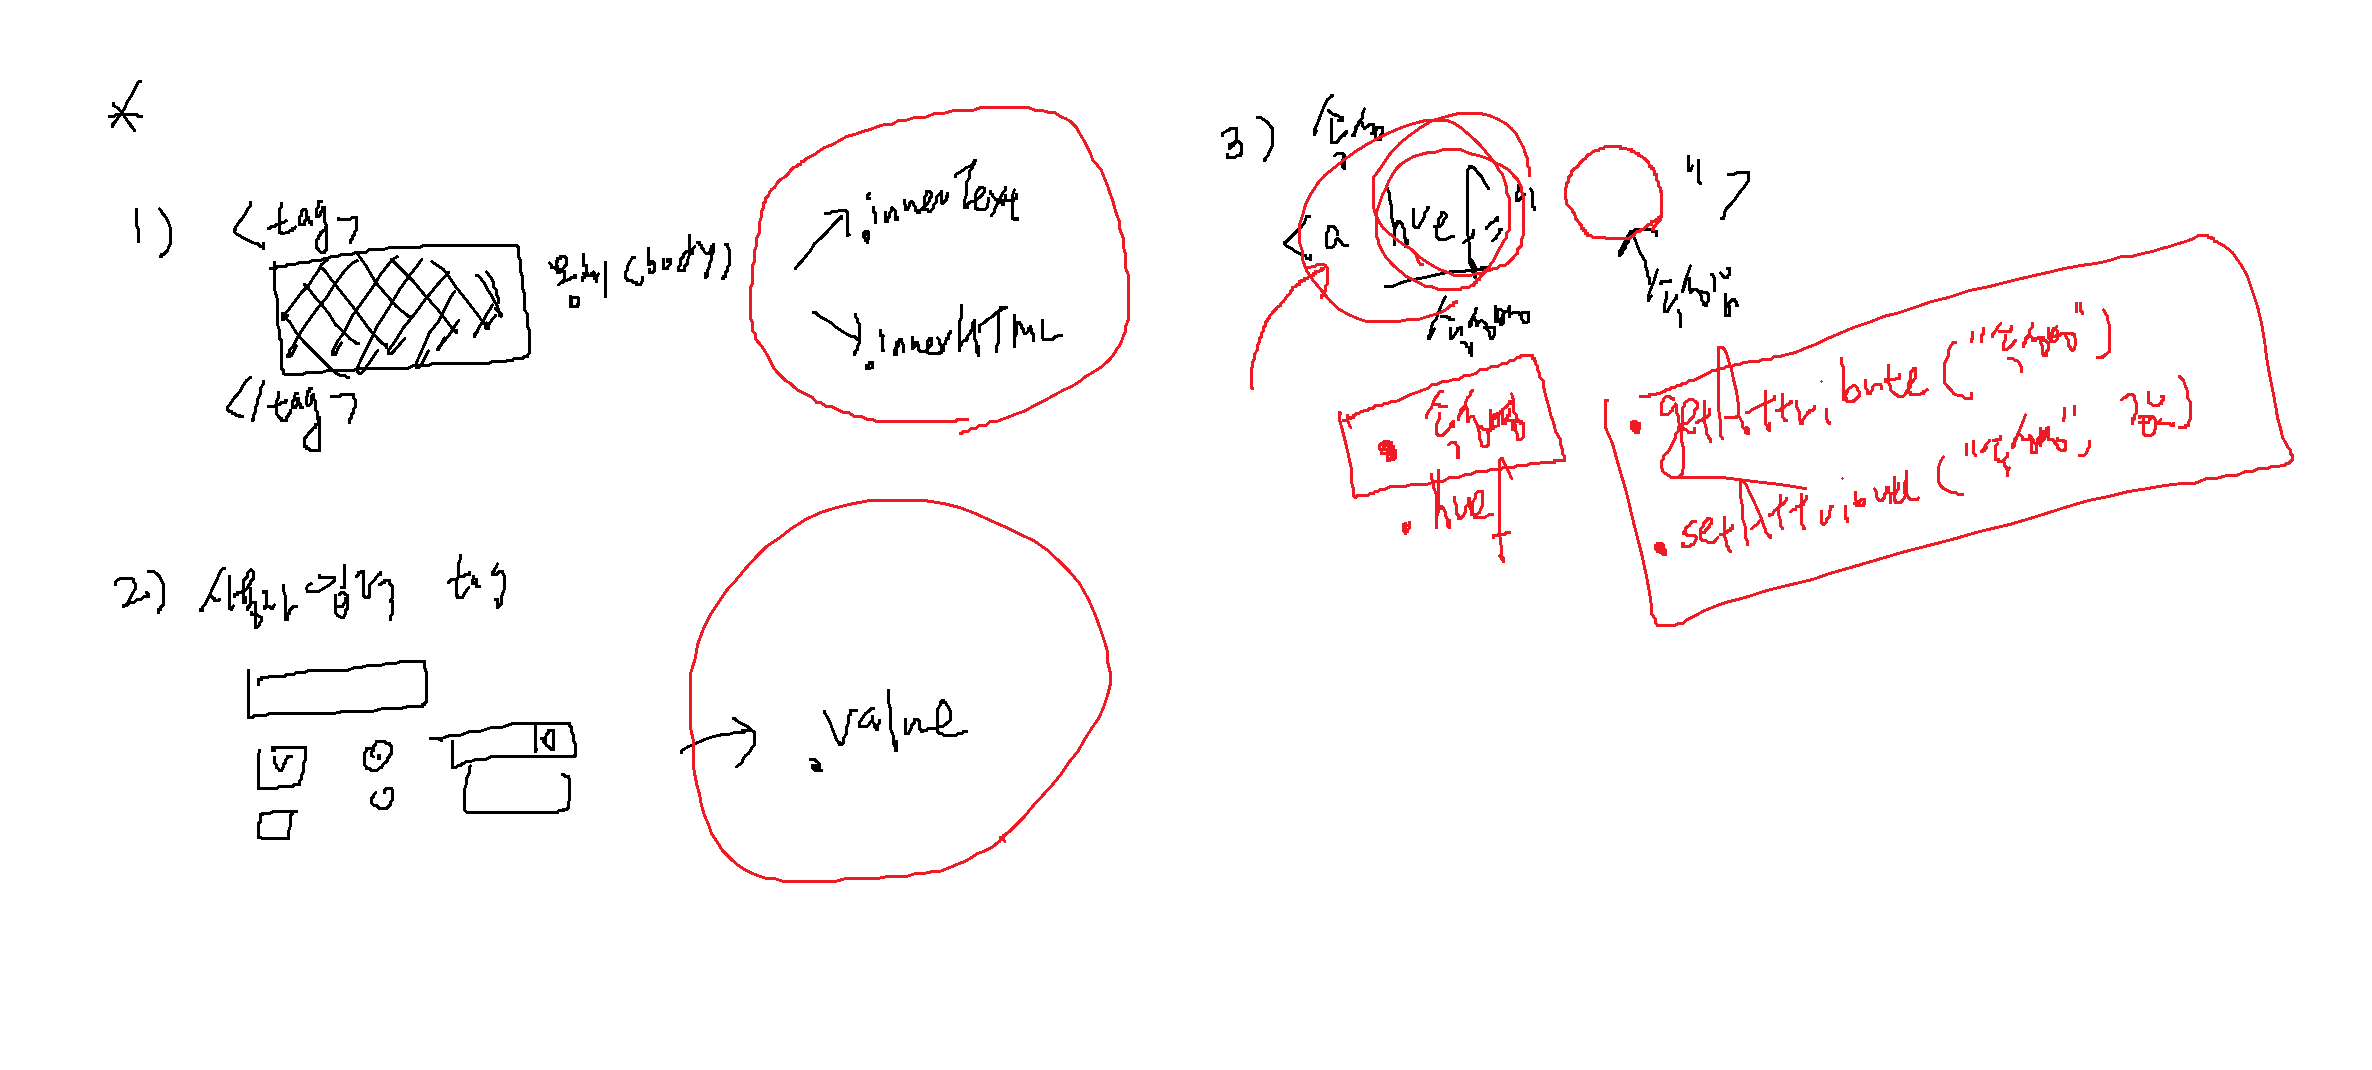 *
1) <tag>
몸체 (body)
</tag>
.innerText
.innerHTML
2) 사용자 입력 tag
.value
3) 속성
<a href=" ">
속성명
속성값
.속성명
.href
.getAttribute("속성명")
.setAttribute("속성명", 값)